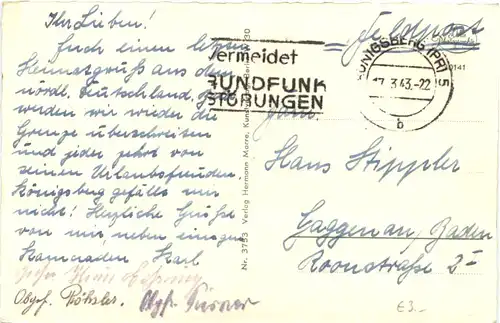 Ihr Lieben!
Euch einen letzten
Heimatgruß aus dem
nördl. Deutschland.
werden wir wieder die
Grenze überschreiten
und jeder zehrt von
seinen Urlaubsfreuden.
Königsberg gefällt mir
nicht! Herzliche Grüße
von mir, neben einigen
Kameraden Karl
Obgf.
Feldpost
Vermeidet
RUNDFUNK
STÖRUNGEN
KÖNIGSBERG (PR) 5
17.3.43.-22
b
Nr. 3753 Verlag Hermann Morre, Berlin
Fam.
Hans Stippler
Gaggenau, Baden
Roonstraße 2
€3.-